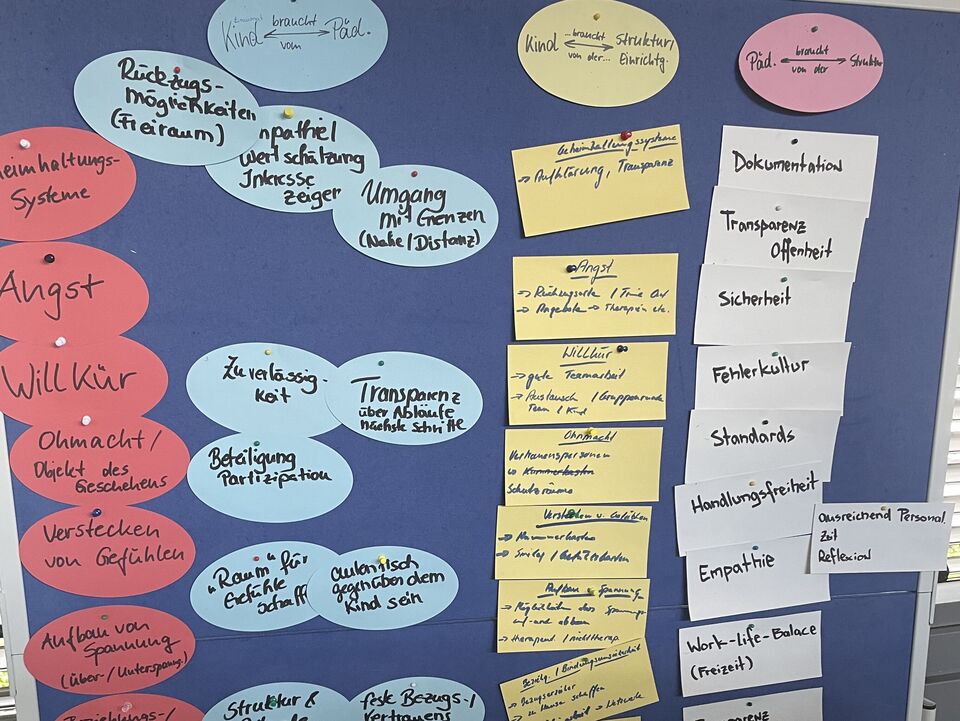 Kind braucht vom Päd.
Kind ...braucht von der... Struktur/
Einrichtg.
Päd. braucht von der Struktur
Rückzugs-
möglichkeiten
(Freiraum)
Wertschätzung
Interesse
zeigen
Umgang
mit Grenzen
(Nähe/Distanz)
Zuverlässig-
keit
Transparenz
über Abläufe
nächste Schritte
Beteiligung
Partizipation
"Raum" für
Gefühle
schaff
autentisch
gegenüber dem
Kind sein
Struktur &
feste Bezugs-/
Vertrauens
eimhaltungs-
Systeme
Angst
Willkür
Ohmacht/
Objekt des
Geschehens
Verstecken
von Gefühlen
Aufbau von
Spannung
(Über-/Unterspanng.)
Beziehungs-/
Geheimhaltungssysteme
→ Aufklärung, Transparenz
Angst
→ Rückzugsorte / Time Out
→ Angebote → Therapien etc.
Willkür
→ gute Teamarbeit
→ Austausch /
Team / Kind
Ohnmacht
Vertrauenspersonen
Kummerkasten
Schutzräume
Verstecken v. Gefühlen
→ Kummerkasten
→ Smiley /
Aufbau v. Spannung
→ Möglichkeiten das Spannungs
auf- und abbauen
→ therapeut. / nichttherap.
→ Bezugserzieher
→ zu Hause schaffen
Dokumentation
Transparenz
Offenheit
Sicherheit
Fehlerkultur
Standards
Handlungsfreiheit
ausreichend Personal
Zeit
Reflexion
Empathie
Work-life-Balace
(Freizeit)
Transparenz